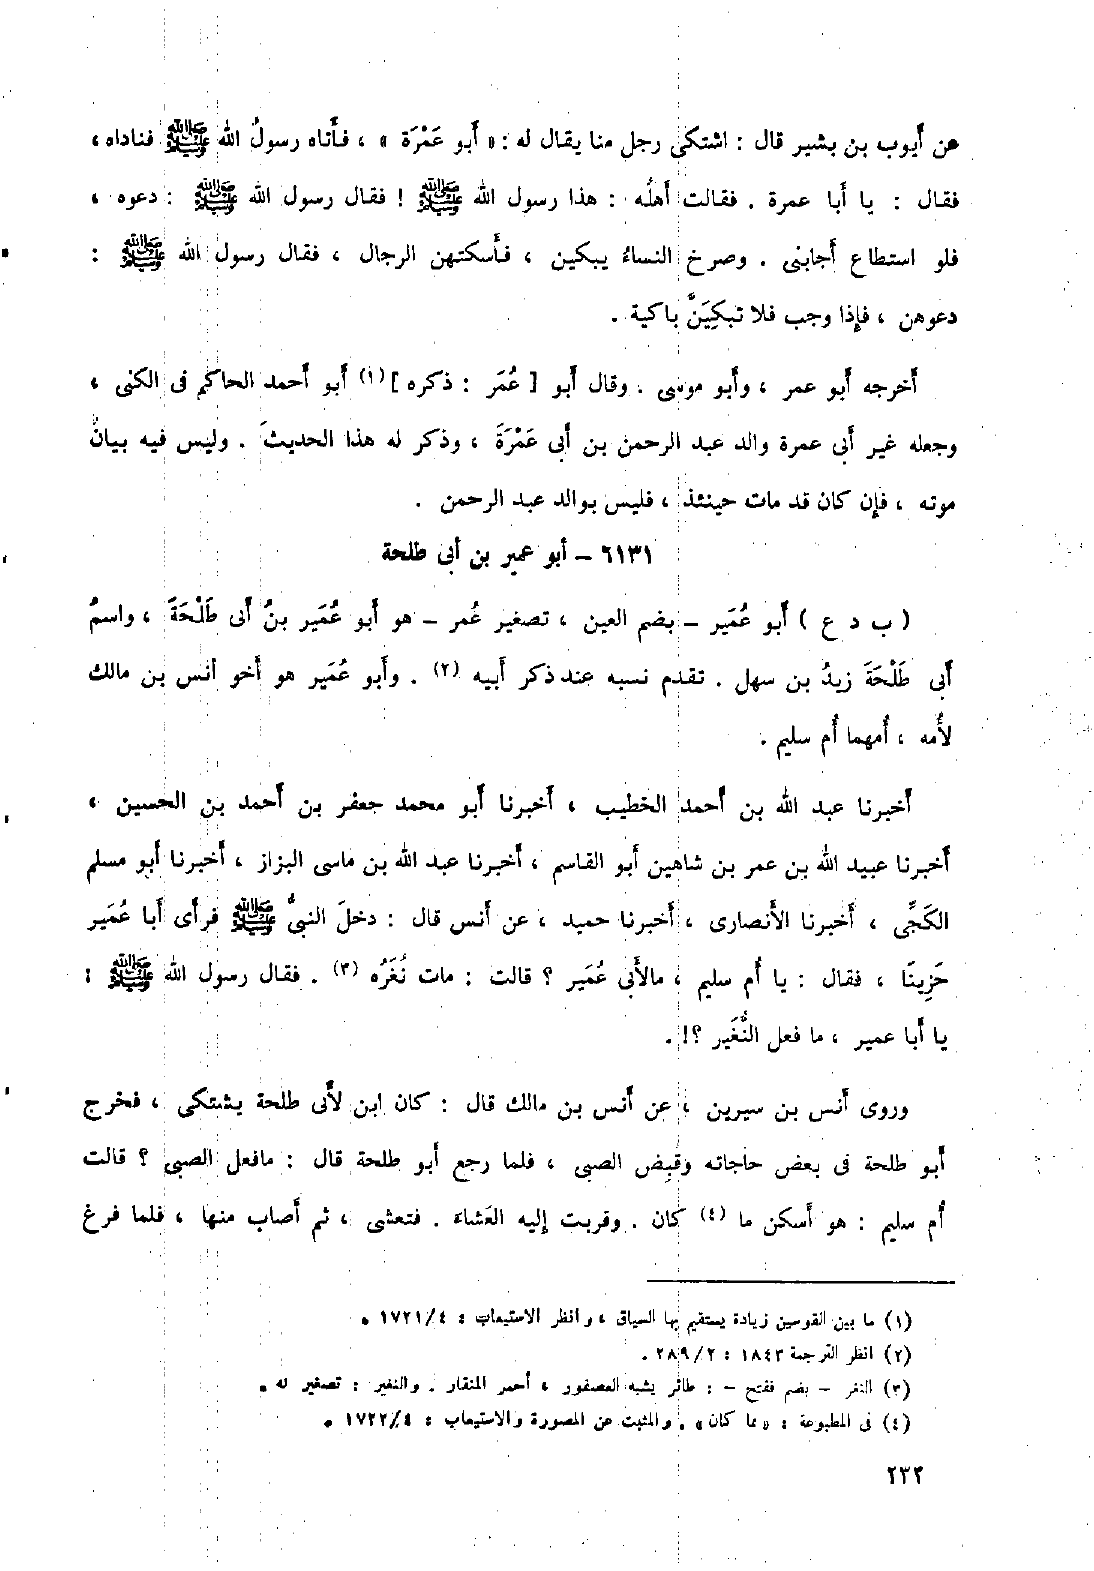 عن أيوب بن بشير قال : اشتكى رجل منا يقال له : « أبو عَمْرَة » ، فأتاه رسولُ الله ﷺ فناداه ،
فقال : يا أبا عمرة . فقالت أهلُه : هذا رسول الله ﷺ ! فقال رسول الله ﷺ : دعوه ،
فلو استطاع أجابنى . وصرخ النساءُ يبكين ، فأسكتهن الرجال ، فقال رسول الله ﷺ :
دعوهن ، فإذا وجب فلا تبكِيَنَّ باكية .
أخرجه أبو عمر ، وأبو موسى . وقال أبو [ عُمَر : ذكره ] (١) أبو أحمد الحاكم فى الكنى ،
وجعله غير أبى عمرة والد عبد الرحمن بن أبى عَمْرَةَ ، وذكر له هذا الحديثَ . وليس فيه بيانُ
موته ، فإن كان قد مات حينئذ ، فليس بوالد عبد الرحمن .
٦١٣١ – أبو عمير بن أبى طلحة
( ب د ع ) أبو عُمَير – بضم العين ، تصغير عُمر – هو أبو عُمَير بنُ أبى طَلْحَةَ ، واسمُ
أبى طَلْحَةَ زيدُ بن سهل . تقدم نسبه عند ذكر أبيه (٢) . وأبو عُمَير هو أخو أنس بن مالك
لأُمه ، أُمهما أُم سليم .
أخبرنا عبد الله بن أحمد الخطيب ، أخبرنا أبو محمد جعفر بن أحمد بن الحسين ،
أخبرنا عبيد الله بن عمر بن شاهين أبو القاسم ، أخبرنا عبد الله بن ماسى البزاز ، أخبرنا أبو مسلم
الكَجِّى ، أخبرنا الأنصارى ، أخبرنا حميد ، عن أنس قال : دخلَ النبىُّ ﷺ فرأى أبا عُمَير
حَزِينًا ، فقال : يا أُم سليم ، مالأبى عُمَير ؟ قالت : مات نُغَرُه (٣) . فقال رسول الله ﷺ :
يا أبا عمير ، ما فعل النُّغَير ؟! .
وروى أنس بن سيرين ، عن أنس بن مالك قال : كان ابن لأبى طلحة يشتكى ، فخرج
أبو طلحة فى بعض حاجاته وقبِض الصبى ، فلما رجع أبو طلحة قال : مافعل الصبى ؟ قالت
أُم سليم : هو أسكن ما (٤) كان . وقربت إليه العَشاءَ . فتعشى ، ثم أصاب منها ، فلما فرغ
(١) ما بين القوسين زيادة يستقيم بها السياق ، وانظر الاستيعاب : ١٧٢١/٤ .
(٢) انظر الترجمة ١٨٤٣ : ٢٨٩/٢ .
(٣) النغر – بضم ففتح – : طائر يشبه العصفور ، أحمر المنقار . والنغير : تصغير له .
(٤) فى المطبوعة : « مما كان » . والمثبت عن المصورة والاستيعاب : ١٧٢٢/٤ .
٢٣٢